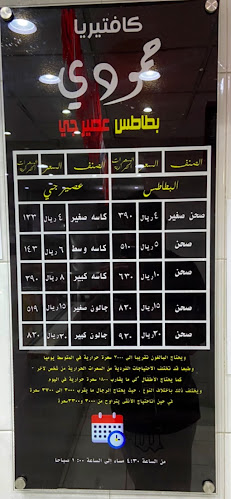 كافتيريا
حمودي
بطاطس عصيرجي
الصنف السعر السعرات الصنف السعر السعرات
البطاطس عصيرجي
صحن صغير ٤ريال ٣٩٠ كاسه صغير ٤ريال ١٣٣
صحن ٥ريال ٥١٠ كاسه وسط ٦ريال ١٤٣
صحن ١٠ريال ٦٣٠ كاسه كبير ٨ريال ٣٩٠
صحن ١٥ريال ٨٣٠ جالون صغير ١٥ريال ٥١٩
صحن ٢٠ريال ٩٣٠ جالون كبير ٣٠ريال ٨٢٠
ويحتاج البالغون تقريبا الى ٢٠٠٠ سعرة حرارية في المتوسط يوميا
وطبعا قد تختلف الاحتياجات الفردية من السعرات الحرارية من شخص لاخر
كما يحتاج الأطفال كل ما يقارب ١٨٠٠ سعرة حرارية في اليوم
ويختلف ذلك باختلاف النوع , حيث يحتاج الرجال ما يقرب ٢٧٠٠ الى ٣٣٠٠ سعرة
في حين احتياج الأنثى يتراوح من ٢٠٠٠ و٢٣٠٠سعرة
من الساعة ٤:٣٠ مساء إلى الساعة ١:٠٠ صباحا